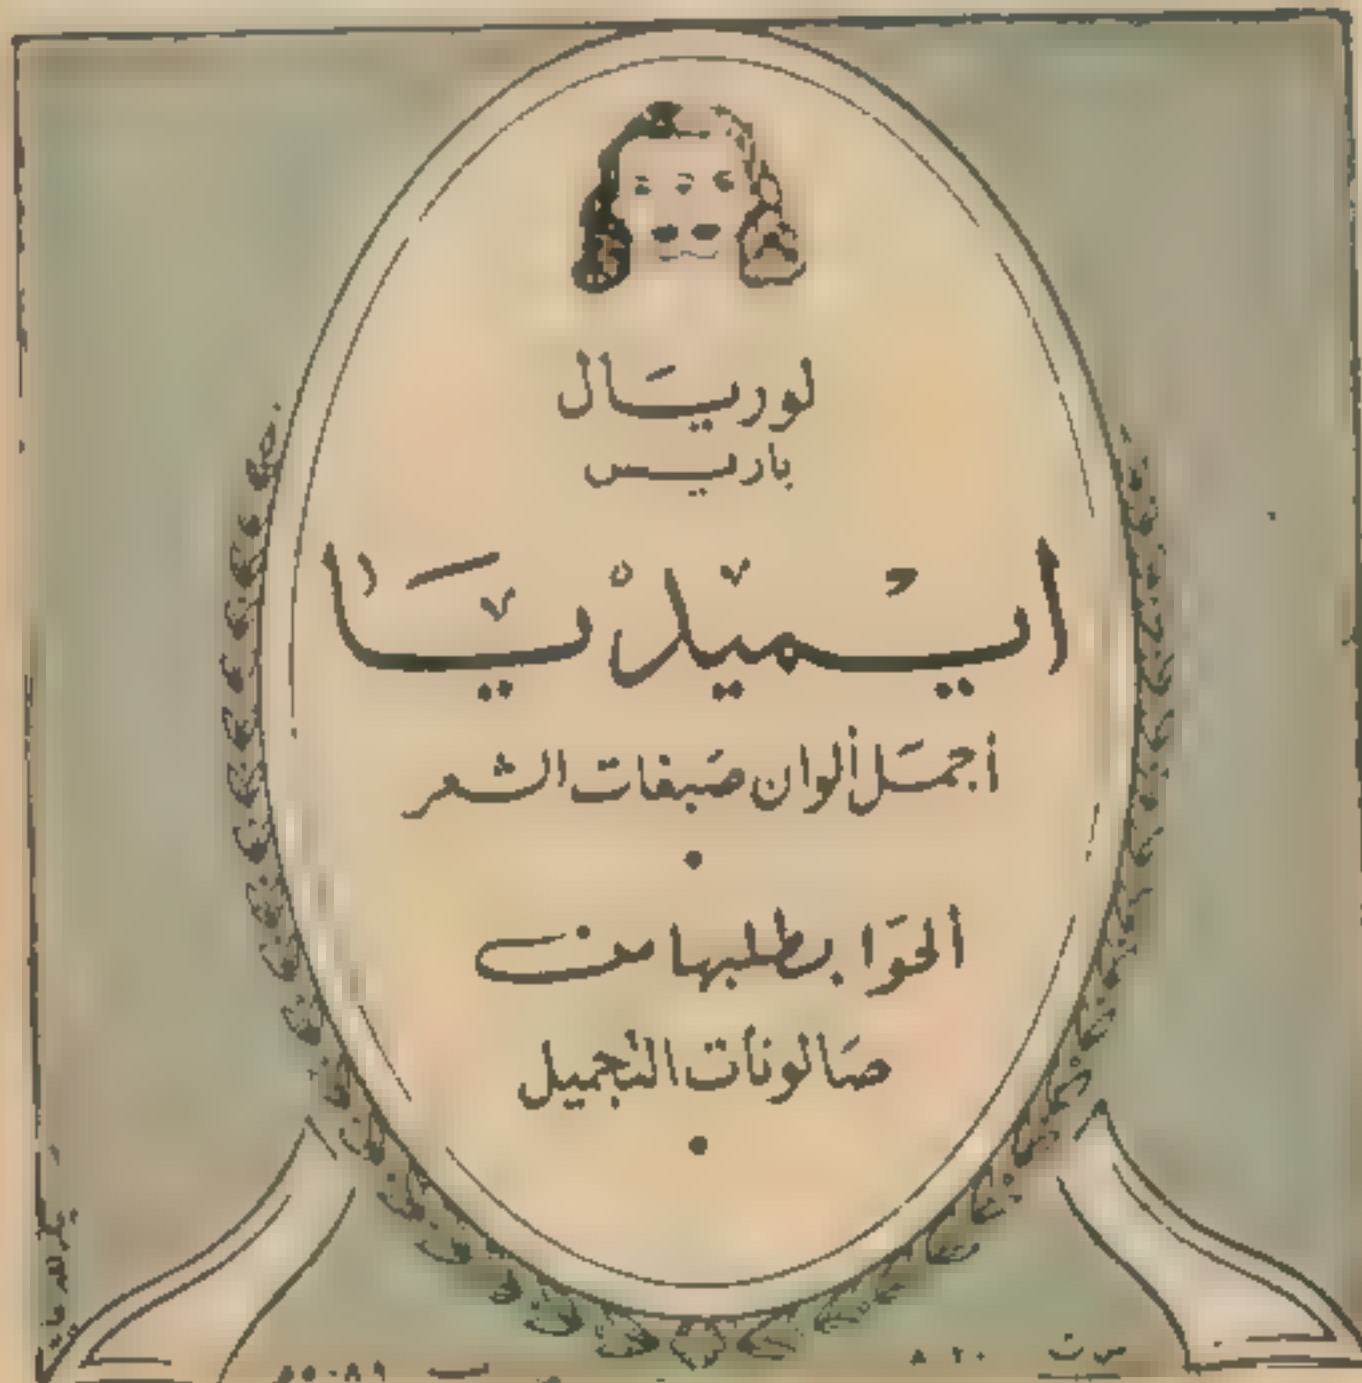 لوريَال
باريس
ايميدْيَا
أجمَل ألوان صَبغات الشعر
ألحوَا بطلبها من
صَالونات التجميل